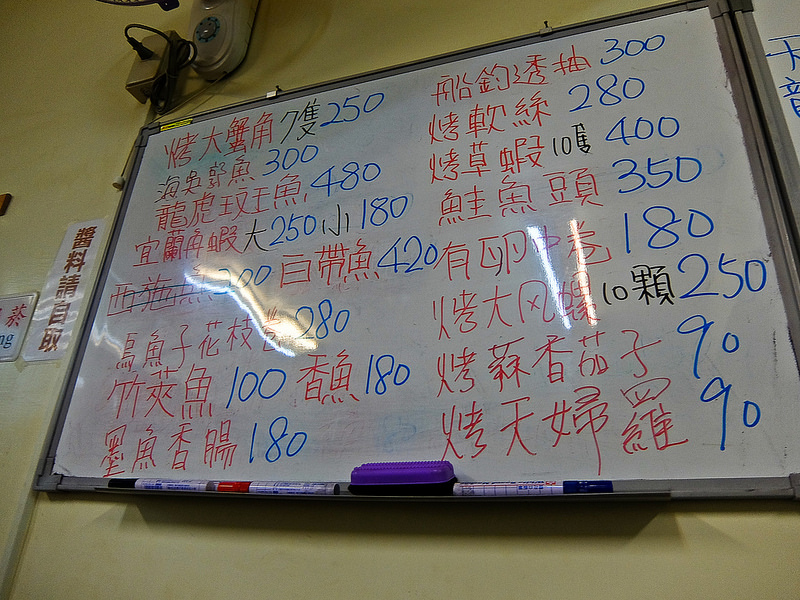 烤大蟹角7隻250
海吳郭魚300
龍虎玟王魚480
宜蘭角蝦大250小180
西 魚200 白帶魚420
烏魚子花枝 280
竹莢魚100 香魚180
墨魚香腸180
船釣透抽300
烤軟絲280
烤草蝦10隻400
鮭魚頭350
有卵中卷180
烤大风螺10顆250
烤蘇香茄子90
烤天婦羅90
醬料請自取
蔡
ng
天